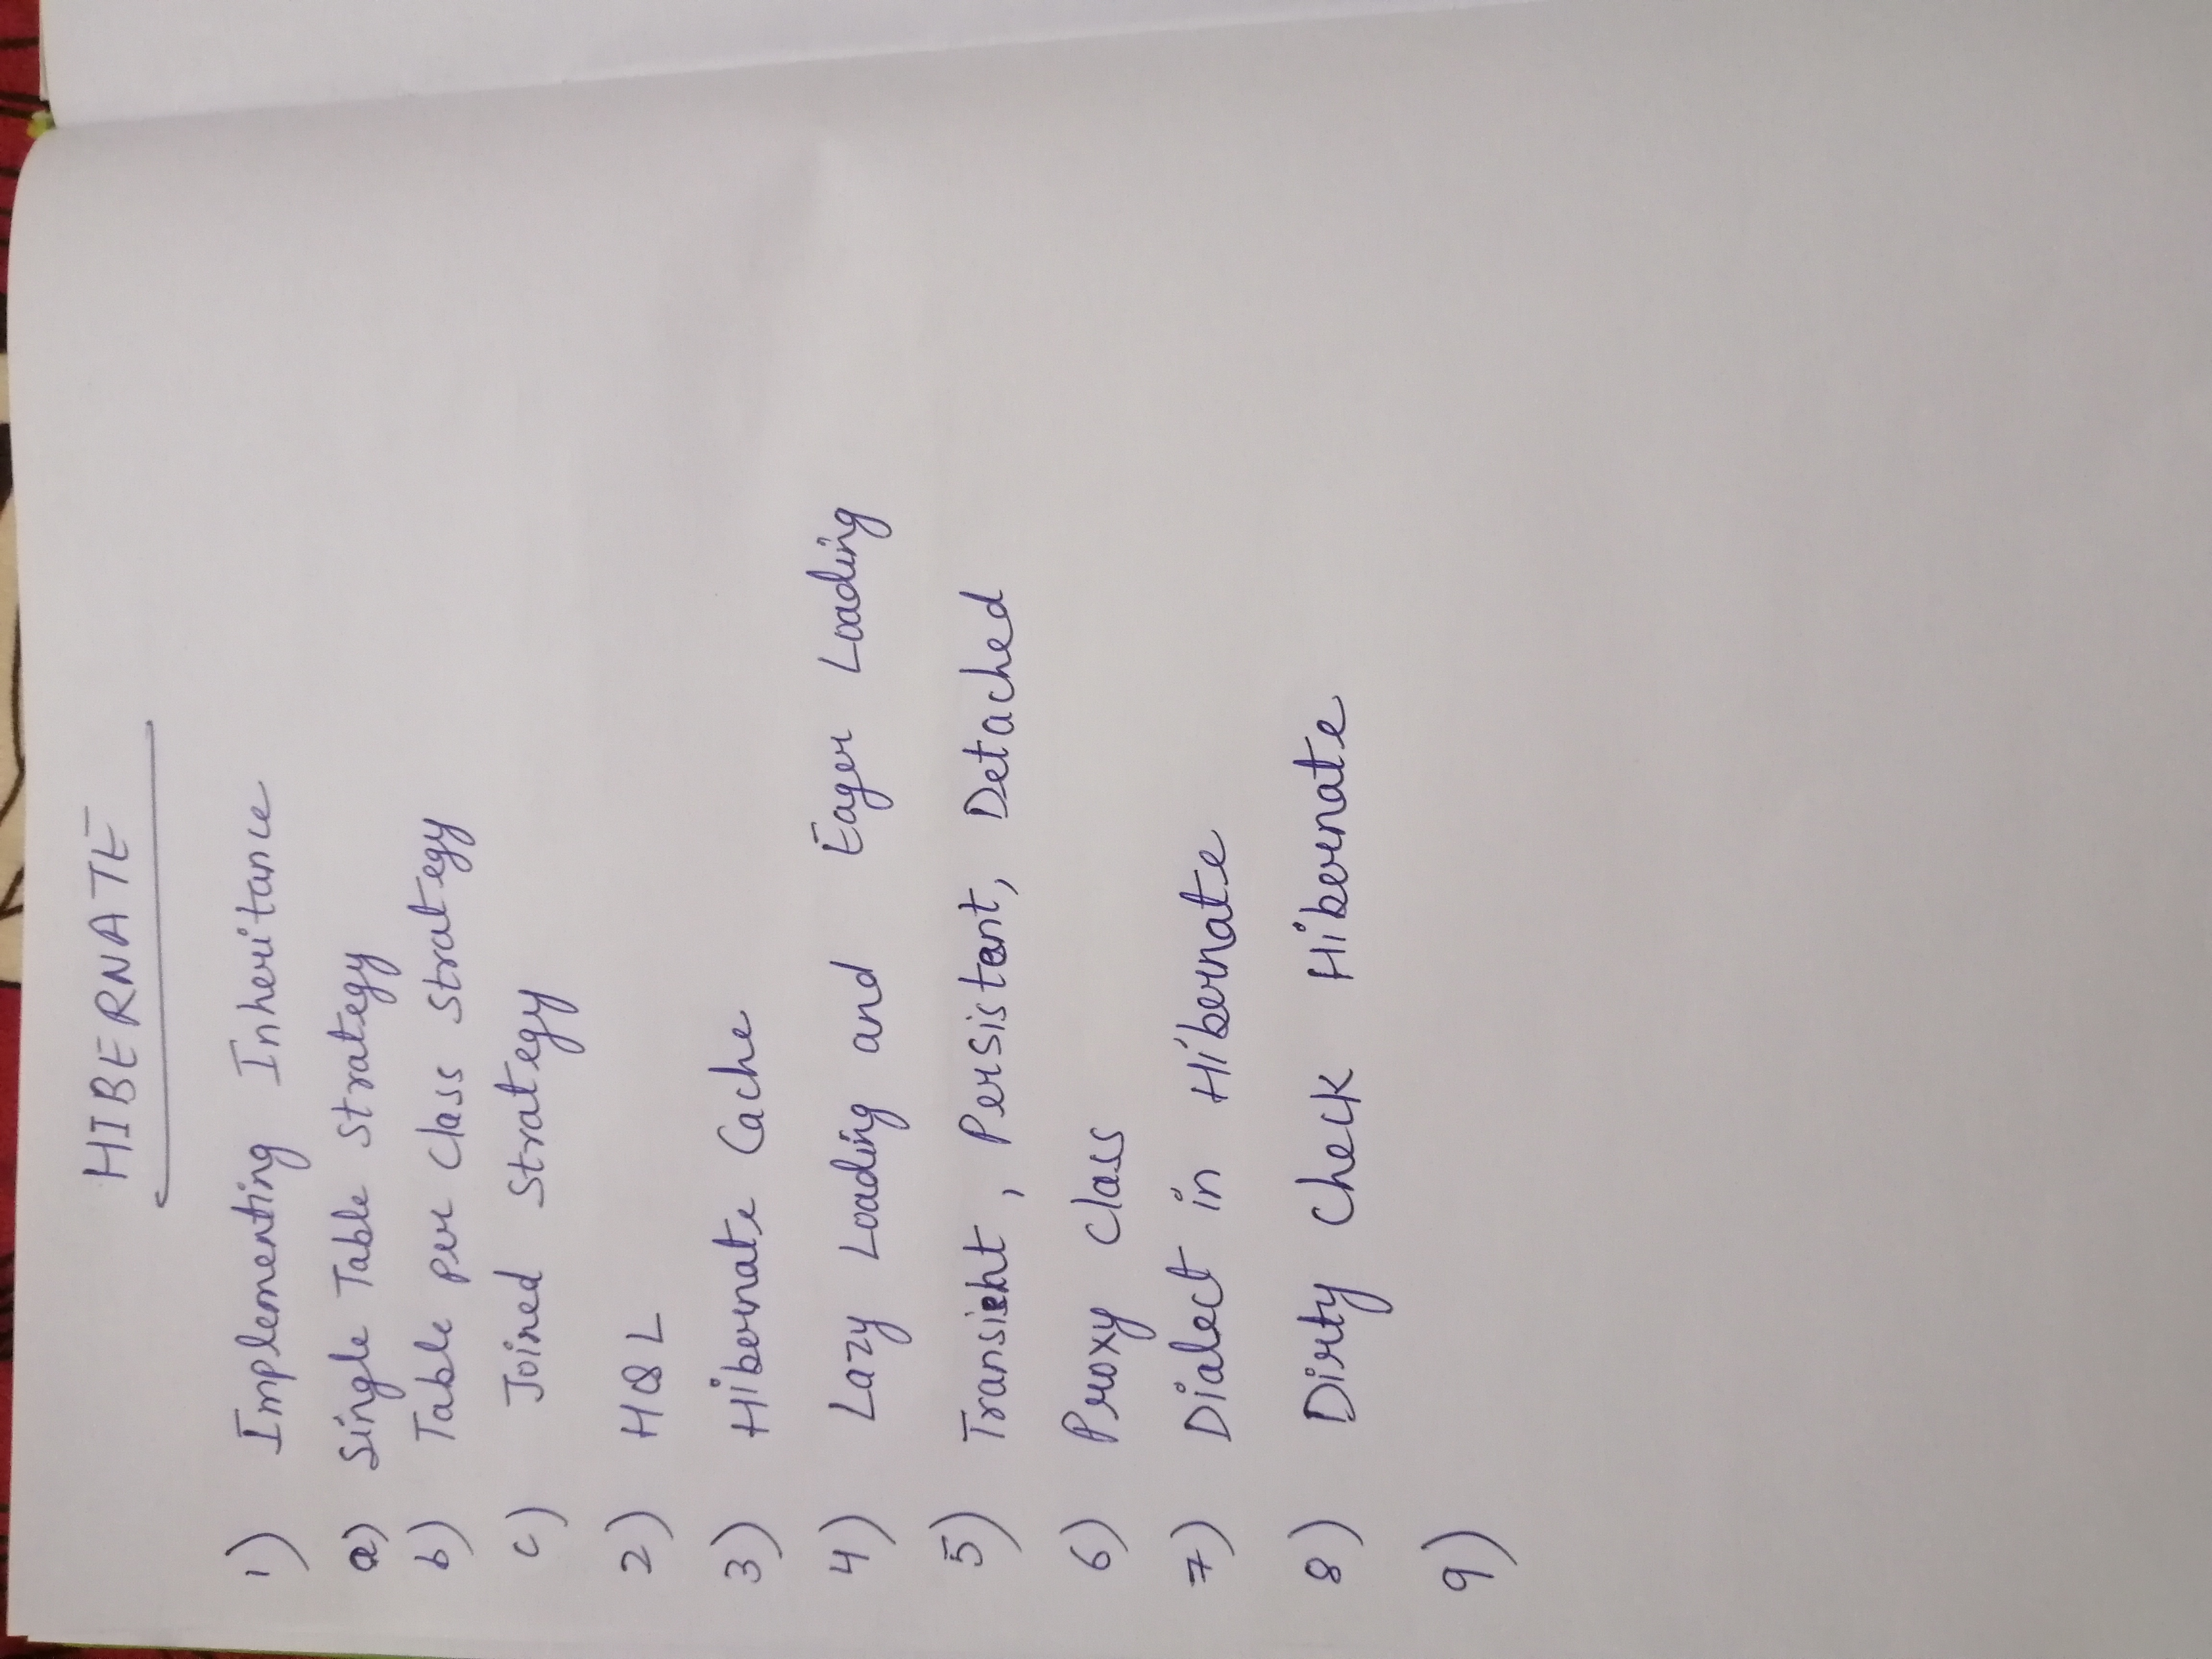 HIBERNATE
1) Implementing Inheritance
a) Single Table Strategy
b) Table per Class Strategy
c) Joined Strategy
2) HQL
3) Hibernate Cache
4) Lazy Loading and Eager Loading
5) Transient, Persistent, Detached
6) Proxy Class
7) Dialect in Hibernate
8) Dirty Check Hibernate
9)